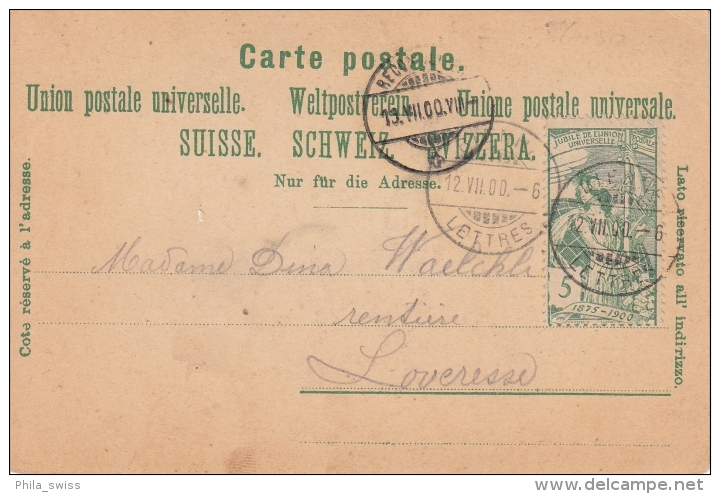 Carte postale.
Union postale universelle. Weltpostverein. Unione postale universale.
SUISSE. SCHWEIZ. SVIZZERA.
Nur für die Adresse.
Côté réservé à l'adresse.
Lato riservato all' indirizzo.
13.VII.00.VII
12.VII.00.-6
LETTRES
JUBILÉ DE L'UNION
UNIVERSELLE POSTALE
12.VII.00.-6
LETTRES
5
1875-1900
Madame Dina Waelchli
rentière
Loveresse
Phila_swiss
www.delcampe.net